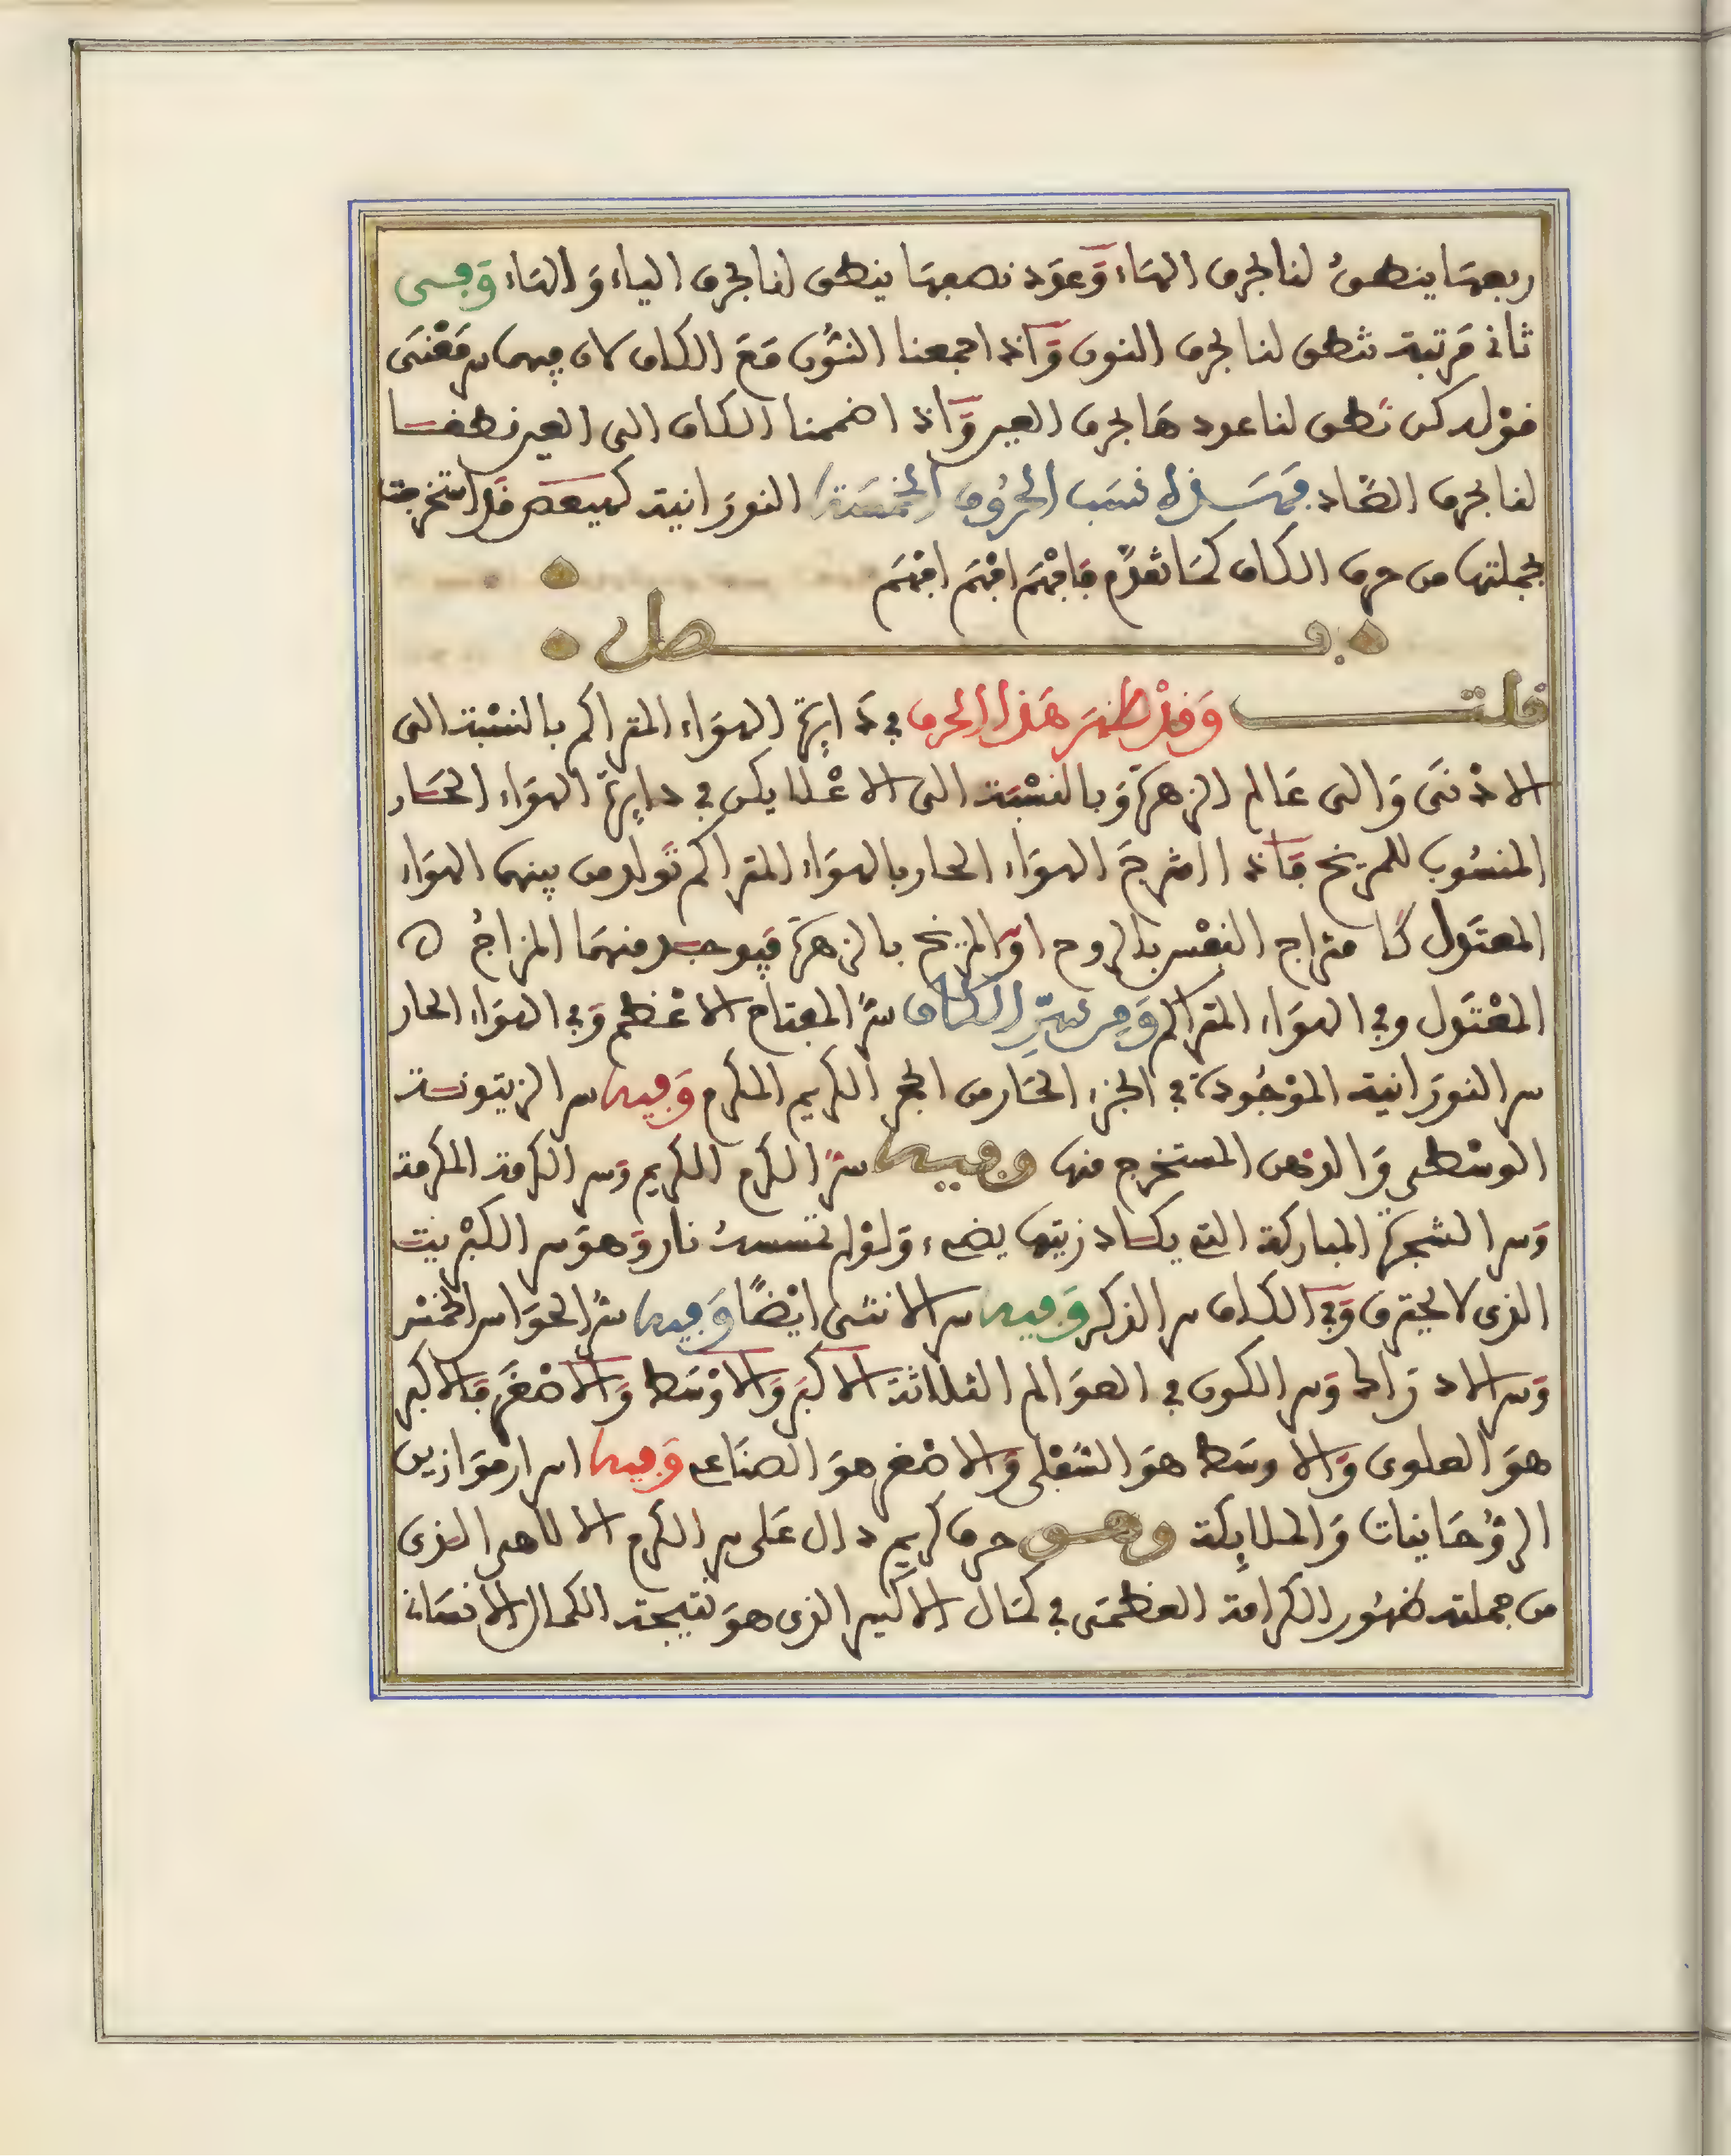 ربعها ينطق لنا بحرف الهاء وعود نصفها ينطق لنا بحرف الياء والهاء وفى
ثانى مرتبة نطق لنا بحرف النون واذا جمعنا النون مع الكاف لان فيهما سر معنى
قوله كن نطق لنا عودها بحرف العين واذا ضممنا الكاف الى العين نطقا
لنا بحرف الصاد فهذه نسب الحروف الخمسة النورانية كهيعص قد استخرجت
بجملتها من حرف الكاف كما تقدم فافهم افهم افهم
فصل
قلت وقد ظهر هذا الحرف في دايرة الهواء المتراكم بالنسبة الى
الادنى والى عالم الزهرة وبالنسبة الى الاعلا يكن في دايرة الهواء الحار
المنسوب للمريخ فاذا امتزج الهواء الحار بالهواء المتراكم تولد من بينهما الهواء
المعتدل كامتزاج النفس بالروح او المريخ بالزهرة فيوجد منهما المزاج ه
المعتدل وفي الهواء المتراكم ومن سر الكاف سر المفتاح الاعظم وفي الهواء الحار
سر النورانية الموجودة في الجزء الحار من الحجر الكريم المكرم وفيه سر الزيتونة
الوسطى والدهن المستخرج منها وفيه سر الكرم الكريم وسر الكرمة المكرمة
وسر الشجرة المباركة التي يكاد زيتها يضىء ولو لم تمسسه نار وهو سر الكبريت
الذى لا يحترق وفي الكاف سر الذكر وفيه سر الانثى ايضا وفيه سر الحواس الخمس
وسر الادراك وسر الكون في العوالم الثلاثة الاكبر والاوسط والاصغر فالاكبر
هو العلوى والاوسط هو السفلى والاصغر هو الصناعى وفيه اسرار موازين
الروحانيات والملايكة وهو حرف كريم دال على سر الكرم الالاهى الذى
من جملته ظهور الكرامة العظمى في كمال الاكسير الذى هو نتيجة الكمال الانسانى